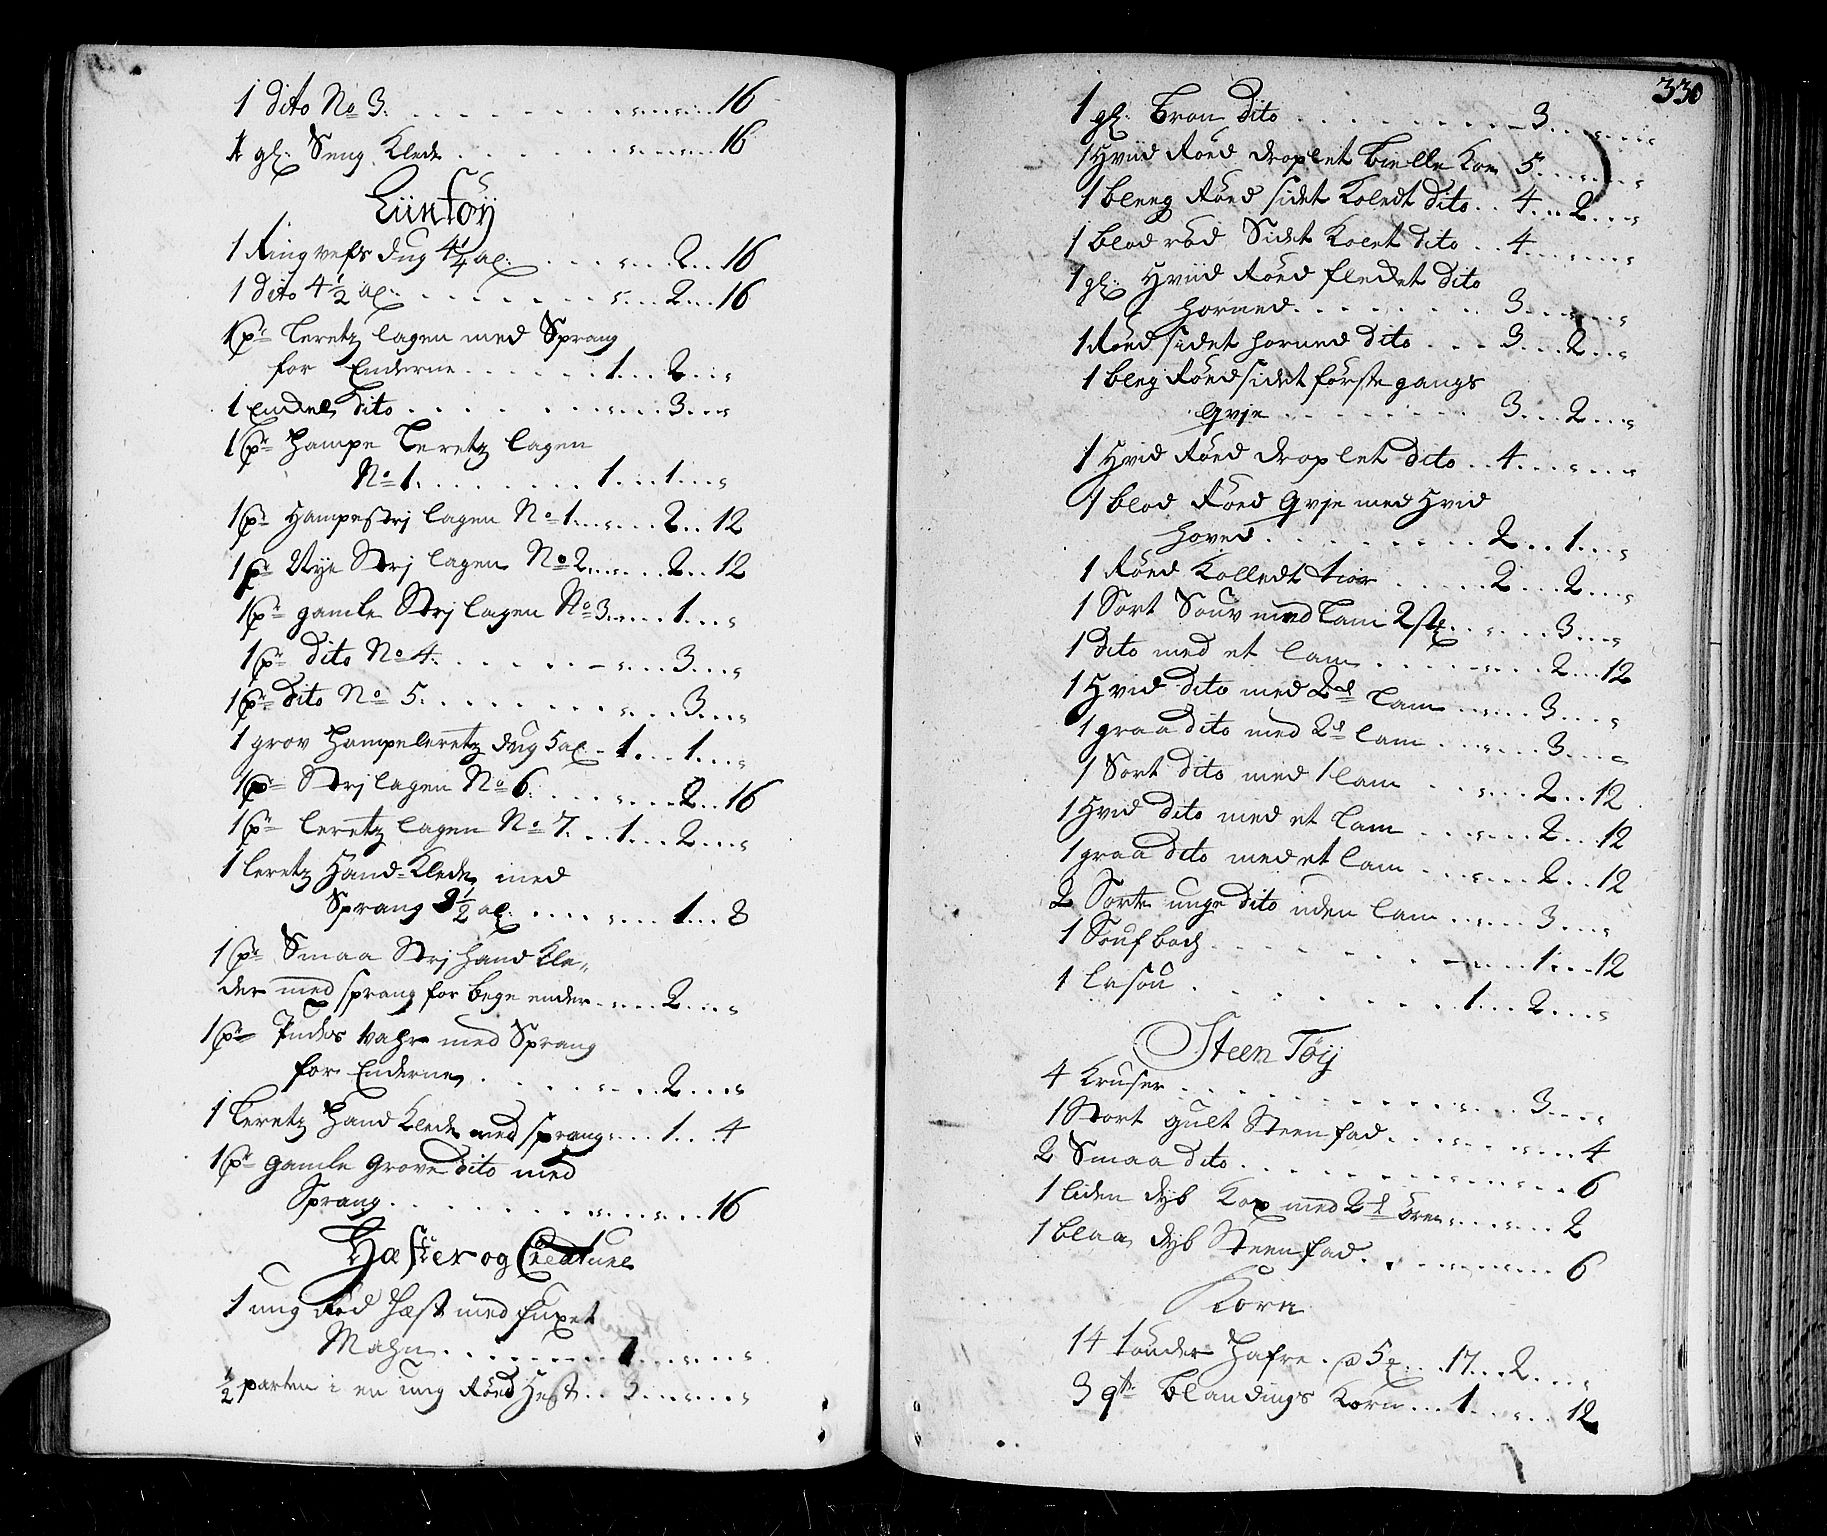 1 dito No 3. . . . . . . . „ . . . „ . . 16
1 gl. Seng Klede . . . . . . „ . . . „ . . 16
Liintöy
1 Ring vefs dug 4 1/4 al: . . . „ . . . 2 . . 16
1 dito 4 1/2 al: . . . . . . „ . . . 2 . . 16
1 pr leretz lagen med Sprang
for Enderne . . . . . . 1 . . . 2 . . „
1 Endel dito . . . . . . . „ . . . 3 . . „
1 pr Hampe Leretz lagen
No 1. . . . . . . . 1 . . . 1 . . „
1 pr Hampestrj lagen No 1. . . „ . . . 2 . . 12
1 pr Nye Strj lagen No 2. . . „ . . . 2 . . 12
1 pr gamle Strj lagen No 3. . . „ . . . 1 . . „
1 pr dito No 4. . . . . . „ . . . 3 . . „
1 pr dito No 5. . . . . . . „ . . . 3 . . „
1 grov Hampeleretz dug 5 al . 1 . . . 1 . . „
1 pr Strj lagen No 6. . . . „ . . . 2 . . 16
1 pr leretz lagen No 7. . . 1 . . . 2 . . „
1 leretz Hand-Klede med
Sprang 3 1/2 al: . . . . „ . . . 1 . . 8
1 pr Smaa Strj Hand Kle„
der med sprang for bege ender . . „ . . . 2 . . „
1 pr Pudes Vahr med Sprang
for Enderne . . . . . „ . . . 2 . . „
1 Leretz Hand Klede med sprang . „ . . . 1 . . 4
1 pr gamle Grove dito med
Sprang . . . . . . . „ . . . „ . . 16
Hæster og Creature
1 ung Röd Hæst med fuxet
Mahn . . . . . . . . 7 . . . „ . . „
1/2 parten i en ung Röed Hest . . 3 . . . „ . . „
330
1 gl. Bron dito . . . . . . . 3 . . . „ . . „
1 Hviid Röed droplet Bielle Koe 5 . . . „ . . „
1 bleeg Röed sidet Koledt dito . . 4 . . . 2 . . „
1 blod röd Sidet Kolet dito . . 4 . . . „ . . „
1 gl. Hviid Röed flecket dito
Horned . . . . . . . 3 . . . „ . . „
1 Röed sidet Horned dito . . . 3 . . . 2 . . „
1 bleg Röedsidet förste gangs
Qvje . . . . . . . 3 . . . 2 . . „
1 Hvid Röed droplet dito . . 4 . . . „ . . „
1 blod Röed Qvje med Hvid
Hoved . . . . . . . 2 . . . 1 . . „
1 Röed Kolledt tior . . . . 2 . . . 2 . . „
1 Sort Souv med Lam 2 stk . . „ . . . 3 . . „
1 dito med et lam . . . . „ . . . 2 . . 12
1 Hvid dito med 2de lam . . „ . . . 3 . . „
1 graa dito med 2de lam . . „ . . . 3 . . „
1 Sort dito med 1 lam . . „ . . . 2 . . 12
1 Hvid dito med et lam . . . „ . . . 2 . . 12
1 graa dito med et lam . . . „ . . . 2 . . 12
2 Sorte unge dito uden lam . . „ . . . 3 . . „
1 Souf boch . . . . . . . „ . . . 1 . . 12
1 lasöu . . . . . . . . 1 . . . 2 . . „
Steen Töij
4 Kruser . . . . . . . . „ . . . 3 . . „
1 Stort gult Steenfad . . . „ . . . „ . . 4
2 Smaa dito . . . . . . . „ . . . „ . . 6
1 liden dyb Kop med 2de ören . . „ . . . „ . . 2
1 blaa dyb Steenfad . . . „ . . . „ . . 6
Korn
14 tönder Hafre . a 5 . . . 17 . . . 2 . . „
3 qtr Blandings Korn . . . 1 . . . „ . . 12